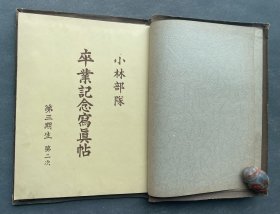 小林部隊
卒業記念寫眞帖
第三期生 第二次